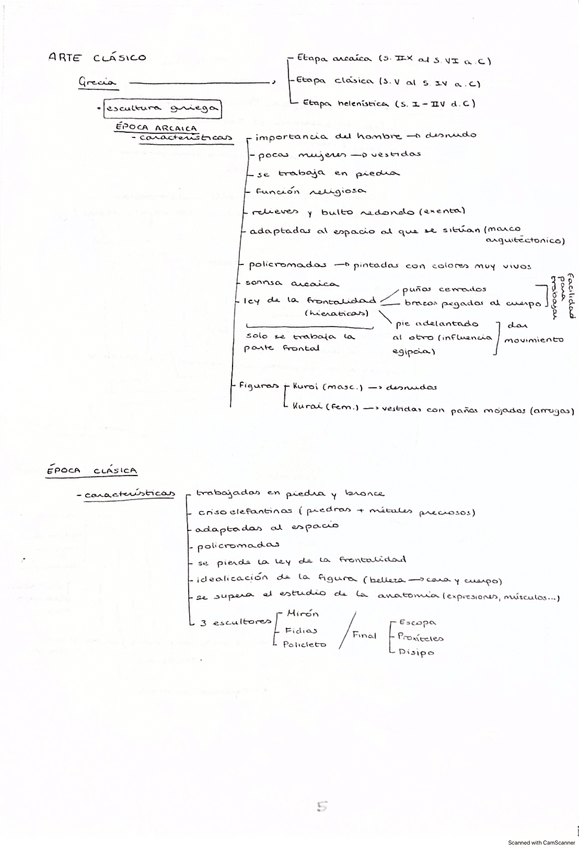 ARTE CLÁSICO
Grecia
Etapa arcaica (s. IIX al s. VI a.C)
Etapa clásica (s. V al s. IV a.C)
Etapa helenística (s. I - IIV d.C)
- escultura griega
ÉPOCA ARCAICA
- características
importancia del hombre → desnudo
- pocas mujeres → vestidas
- se trabaja en piedra
- Función religiosa
- relieves y bulto redondo (exenta)
- adaptadas al espacio al que se sitúan (marco
arquitéctonico)
- policromadas → pintadas con colores muy vivos
- sonrisa arcaica
- ley de la frontalidad
(hieraticas)
puños cerrados
brazos pegados al cuerpo
Facilidad
para
trabajar
pie adelantado
al otro (influencia
egipcia)
dar
movimiento
solo se trabaja la
parte frontal
- Figuras
Kuroi (masc.) → desnudas
Kurai (Fem.) → vestidas con paños mojados (arrugas)
ÉPOCA CLÁSICA
- características
trabajadas en piedra y bronce
- crisoelefantinas (piedras + metales preciosos)
- adaptadas al espacio
- policromadas
- se pierde la ley de la frontalidad
- idealicación de la figura (belleza → cara y cuerpo)
- se supera el estudio de la anatomía (expresiones, músculos...)
- 3 escultores
Mirón
Fidias
Policleto
Final
Escopa
Praxíteles
Disipo
5
Scanned with CamScanner